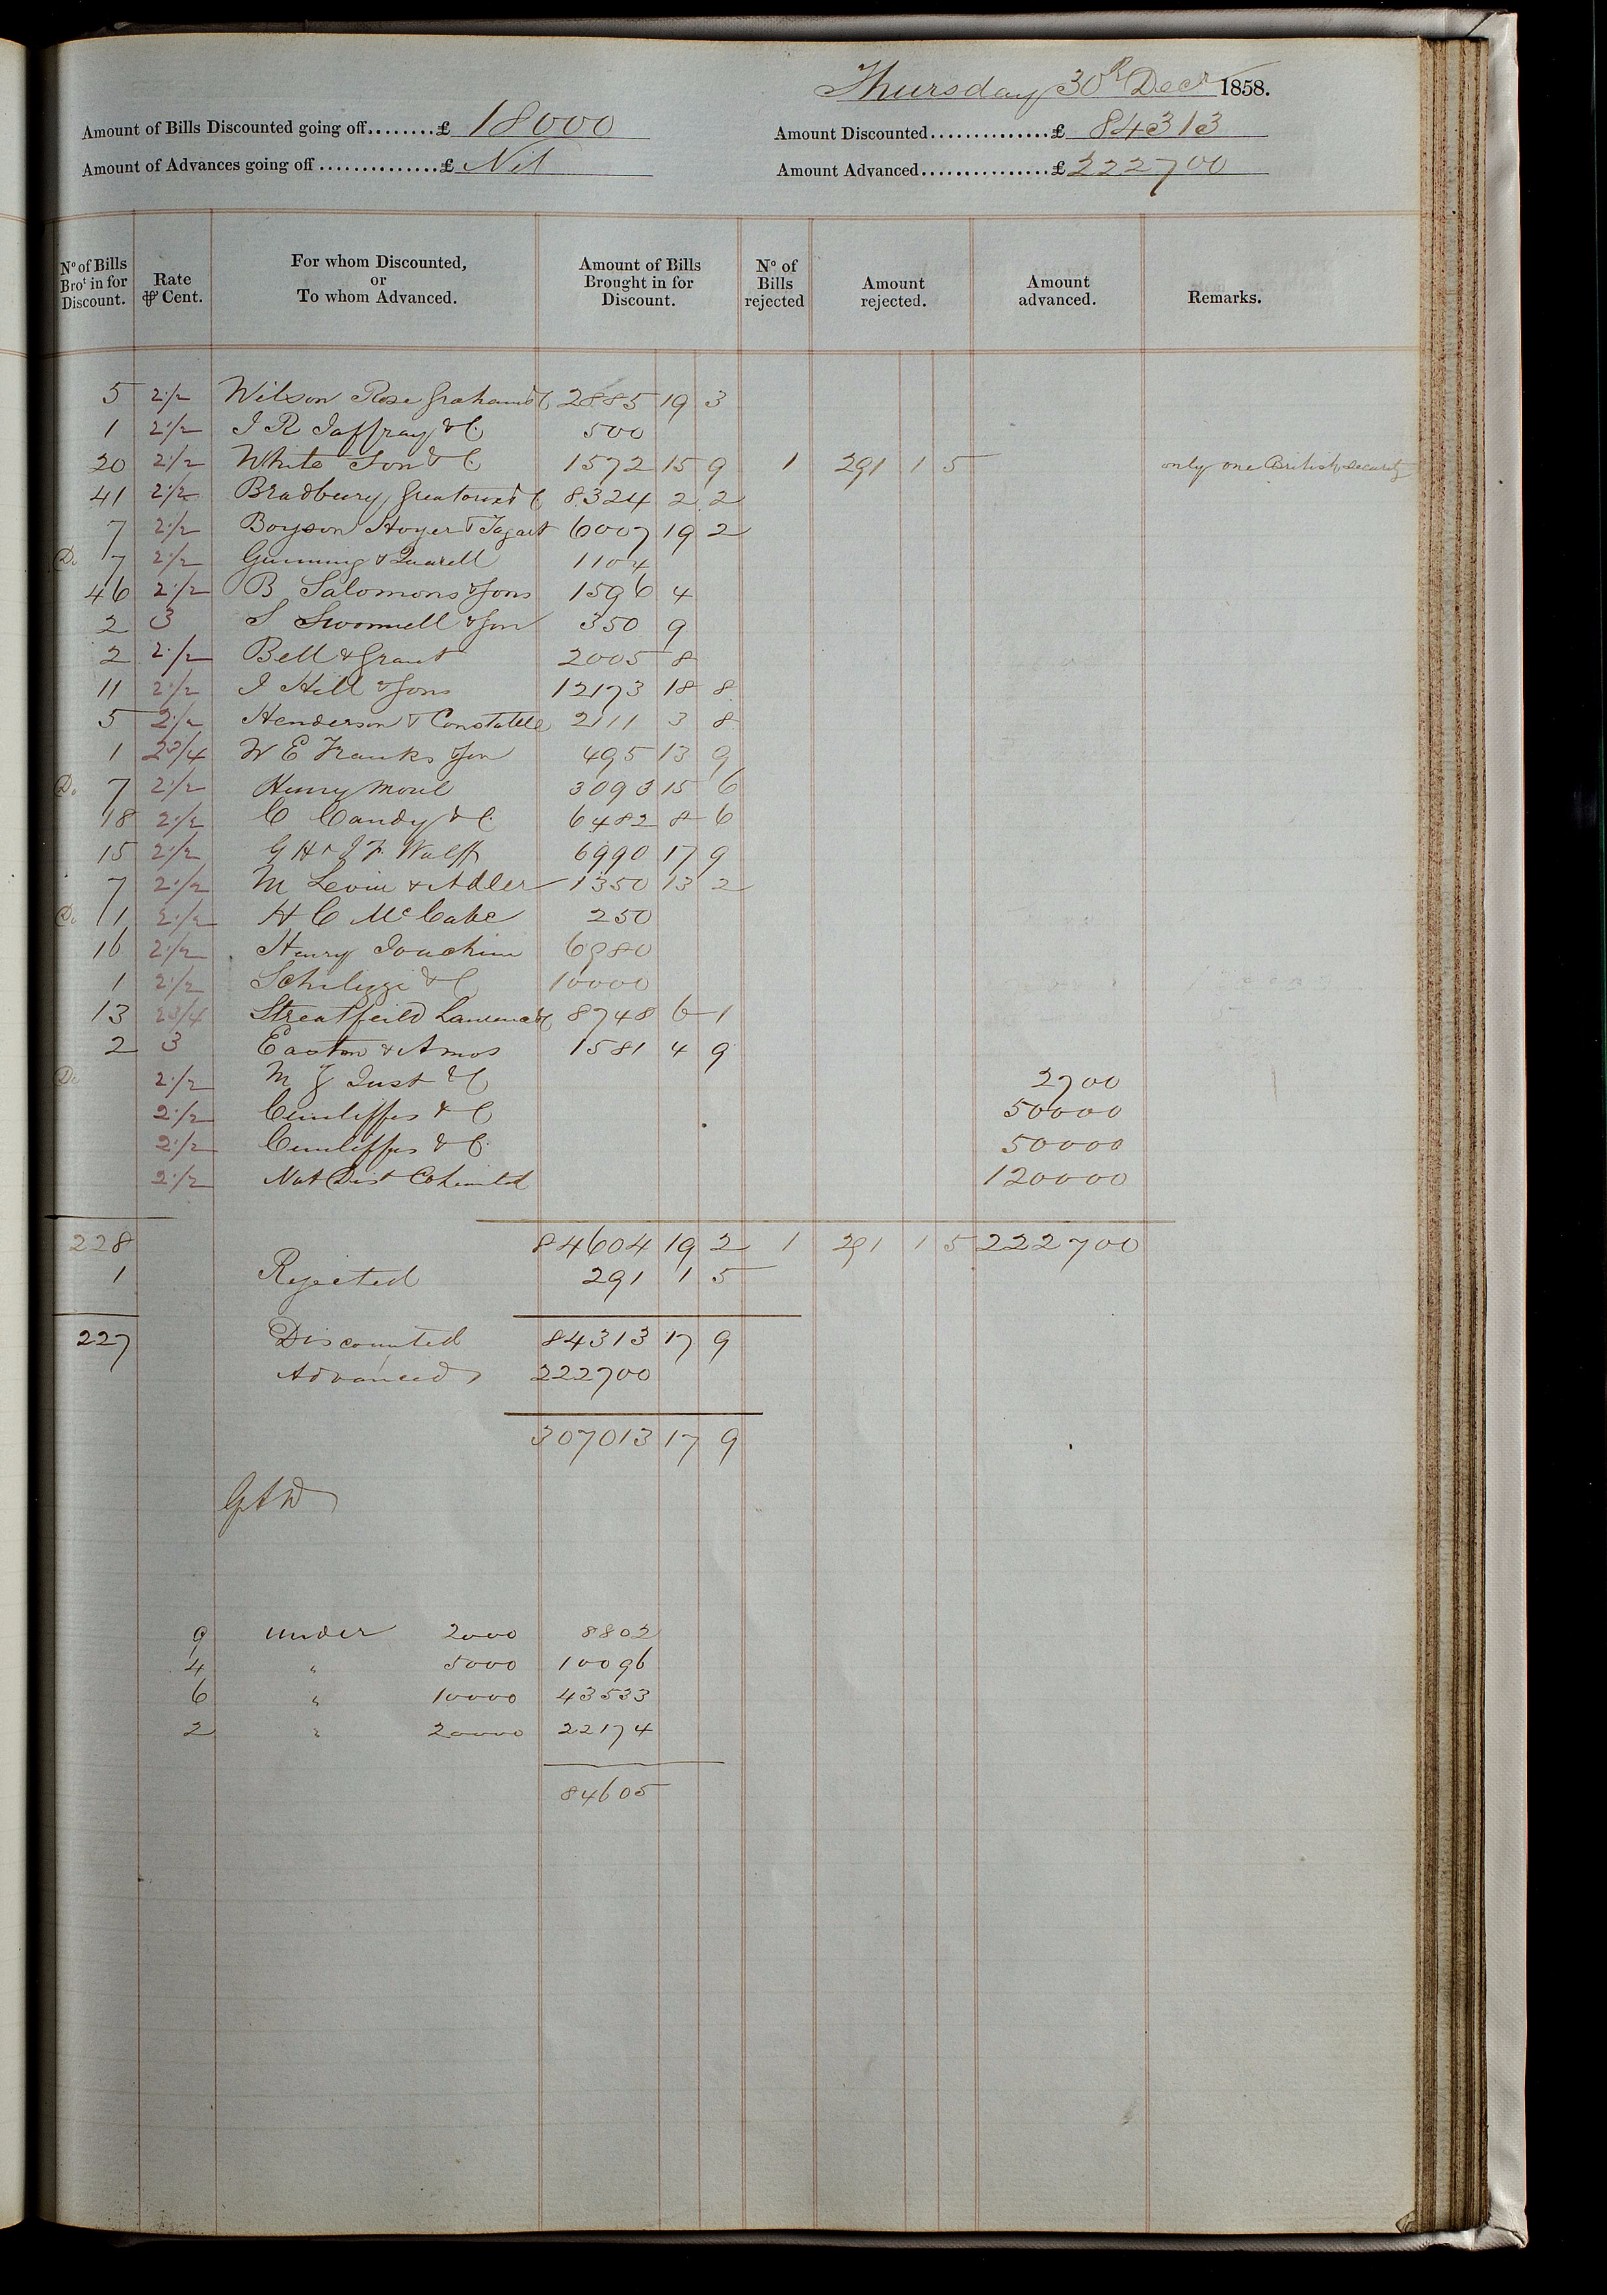 Thursday 30th Decr 1858.
Amount of Bills Discounted going off........£ 18000 Amount Discounted..............£ 84313
Amount of Advances going off..............£ Nil Amount Advanced...............£ 222700
No of Bills Brot in for Discount. Rate ⅌ Cent. For whom Discounted, or To whom Advanced. Amount of Bills Brought in for Discount. No of Bills rejected Amount rejected. Amount advanced. Remarks.
5 2½ Wilson Rose Graham & C 2885 19 3
1 2½ J R Jaffray & C 500
20 2½ White Son & C 1572 15 9 1 291 1 5 only one British security
41 2½ Bradbury Greatorex & C 8324 2 2
7 2½ Boyson Hoyer & Tagart 6007 19 2
Do 7 2½ Gunning & Quarell 1104
46 2½ B Salomons & Sons 1596 4
2 3 S Swonnell & Son 350 9
2 2½ Bell & Grant 2005 8
11 2½ J Hill & Sons 12173 18 8
5 2½ Henderson & Constable 2111 3 8
1 2¾ W E Franks & Son 495 13 9
Do 7 2½ Henry Moul 3093 15 6
18 2½ C Candy & C 6482 8 6
15 2½ G H & J F Wulff 6990 17 9
7 2½ M Levin & Adler 1350 13 2
Do 1 2½ H C McCabe 250
16 2½ Henry Joachim 6980
1 2½ Schilizzi & C 10000
13 2¾ Streatfeild Laurence & C 8748 6 1
2 3 Easton & Amos 1581 4 9
Do 2½ M J Just & C 2700
2½ Cunliffes & C 50000
2½ Cunliffes & C 50000
2½ Nat Dist Co Limited 120000
228 84604 19 2 1 291 1 5 222700
1 Rejected 291 1 5
227 Discounted 84313 17 9
Advanced 222700
307013 17 9
9 under 2000 8802
4 " 5000 10096
6 " 10000 43533
2 " 20000 22174
84605